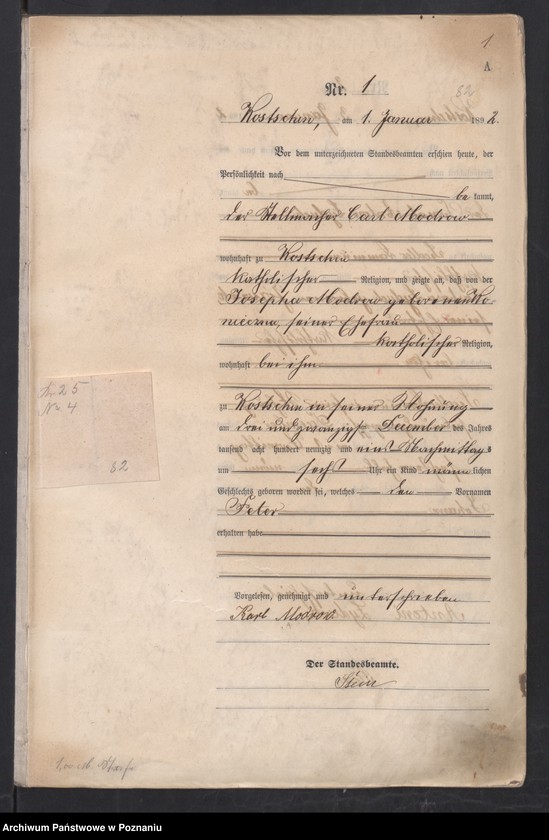 1
A
Nr. 1
82
Kostschin, am 1. Januar 1892.
Vor dem unterzeichneten Standesbeamten erschien heute, der
Persönlichkeit nach
be kannt,
der Stellmacher Carl Modrow
wohnhaft zu Kostschin
katholischer Religion, und zeigte an, daß von der
Josepha Modrow geborenen Ko-
nieczna, seiner Ehefrau
katholischer Religion,
wohnhaft bei ihm
zu Kostschin in seiner Wohnung
am drei und zwanzigsten December des Jahres
tausend acht hundert neunzig und eins Nachmittags
um sechs Uhr ein Kind männlichen
Geschlechts geboren worden sei, welches den Vornamen
Peter
erhalten habe
Vorgelesen, genehmigt und unterschrieben
Karl Modrow
Der Standesbeamte.
25
No 4
82
Archiwum Państwowe w Poznaniu